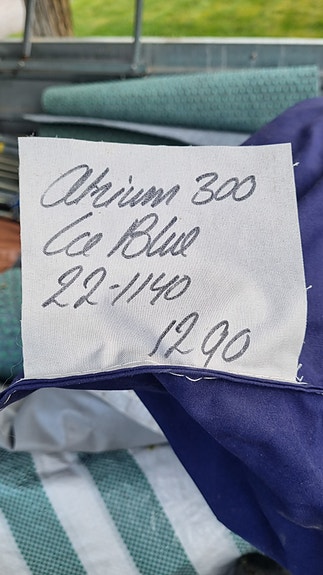 Atrium 300
Ice Blue
22-1140
1290